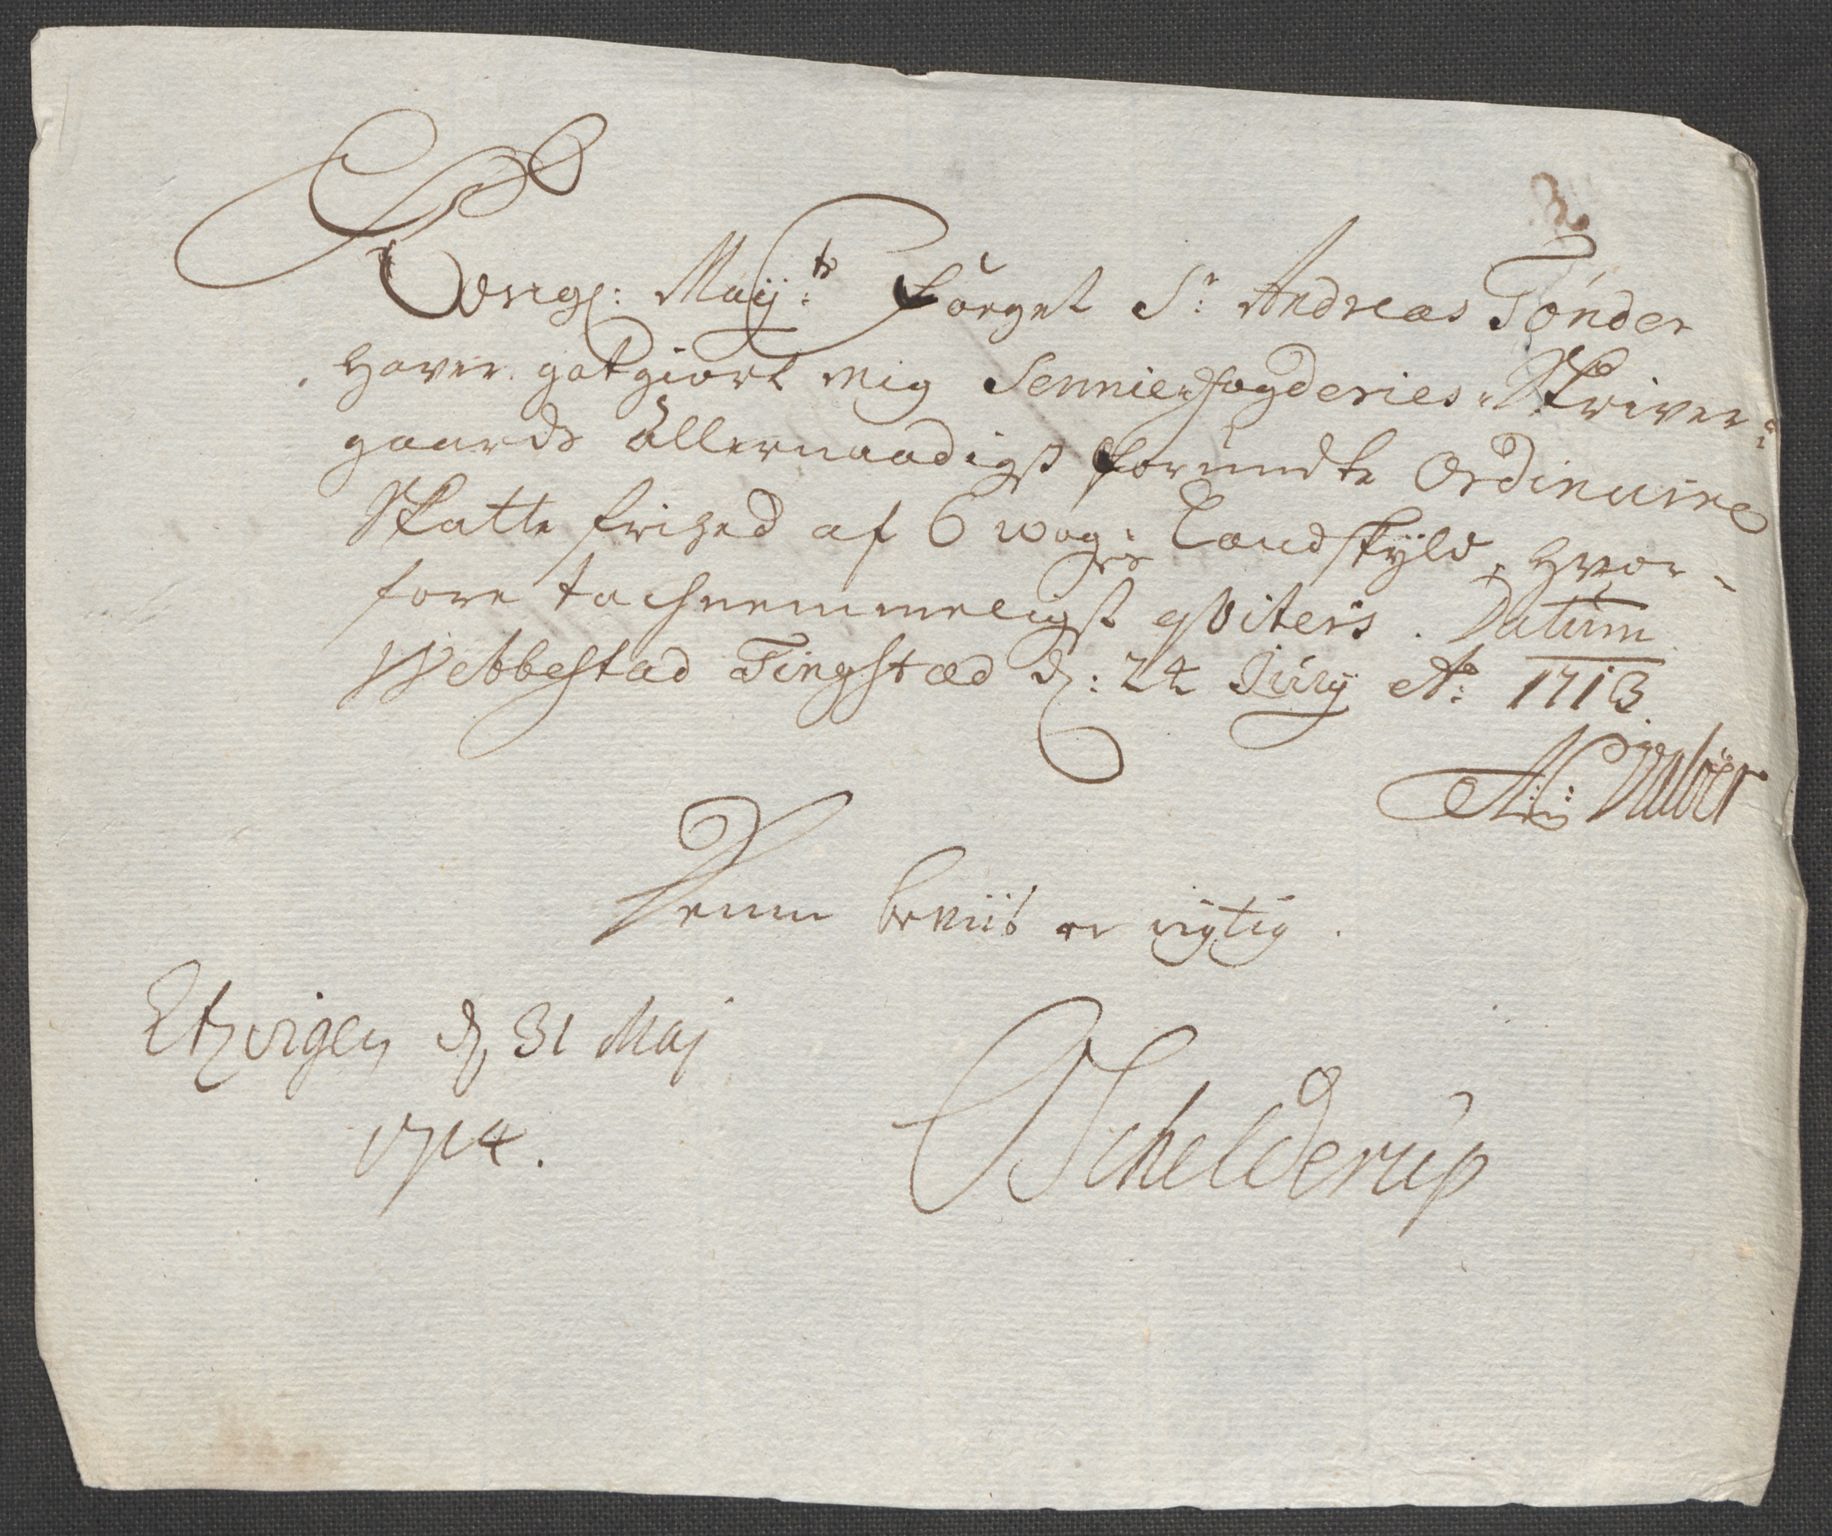 3.
Kongl: Mayts: Foeget Sr: Andreas Tønder
haver gotgiort mig Sennie Fogderies Skriver:
gaards Allernaadigst forundte Ordinaire
Skatte frihed af 6 wog: Landskyld, hvor-
fore tachnemmeligst qviteris. Datum
Webbestad Tingstæd d: 24 July Ao: 1713.
Denne beviis er rigtig.
d. 31 Maj
1714.
Schelderup